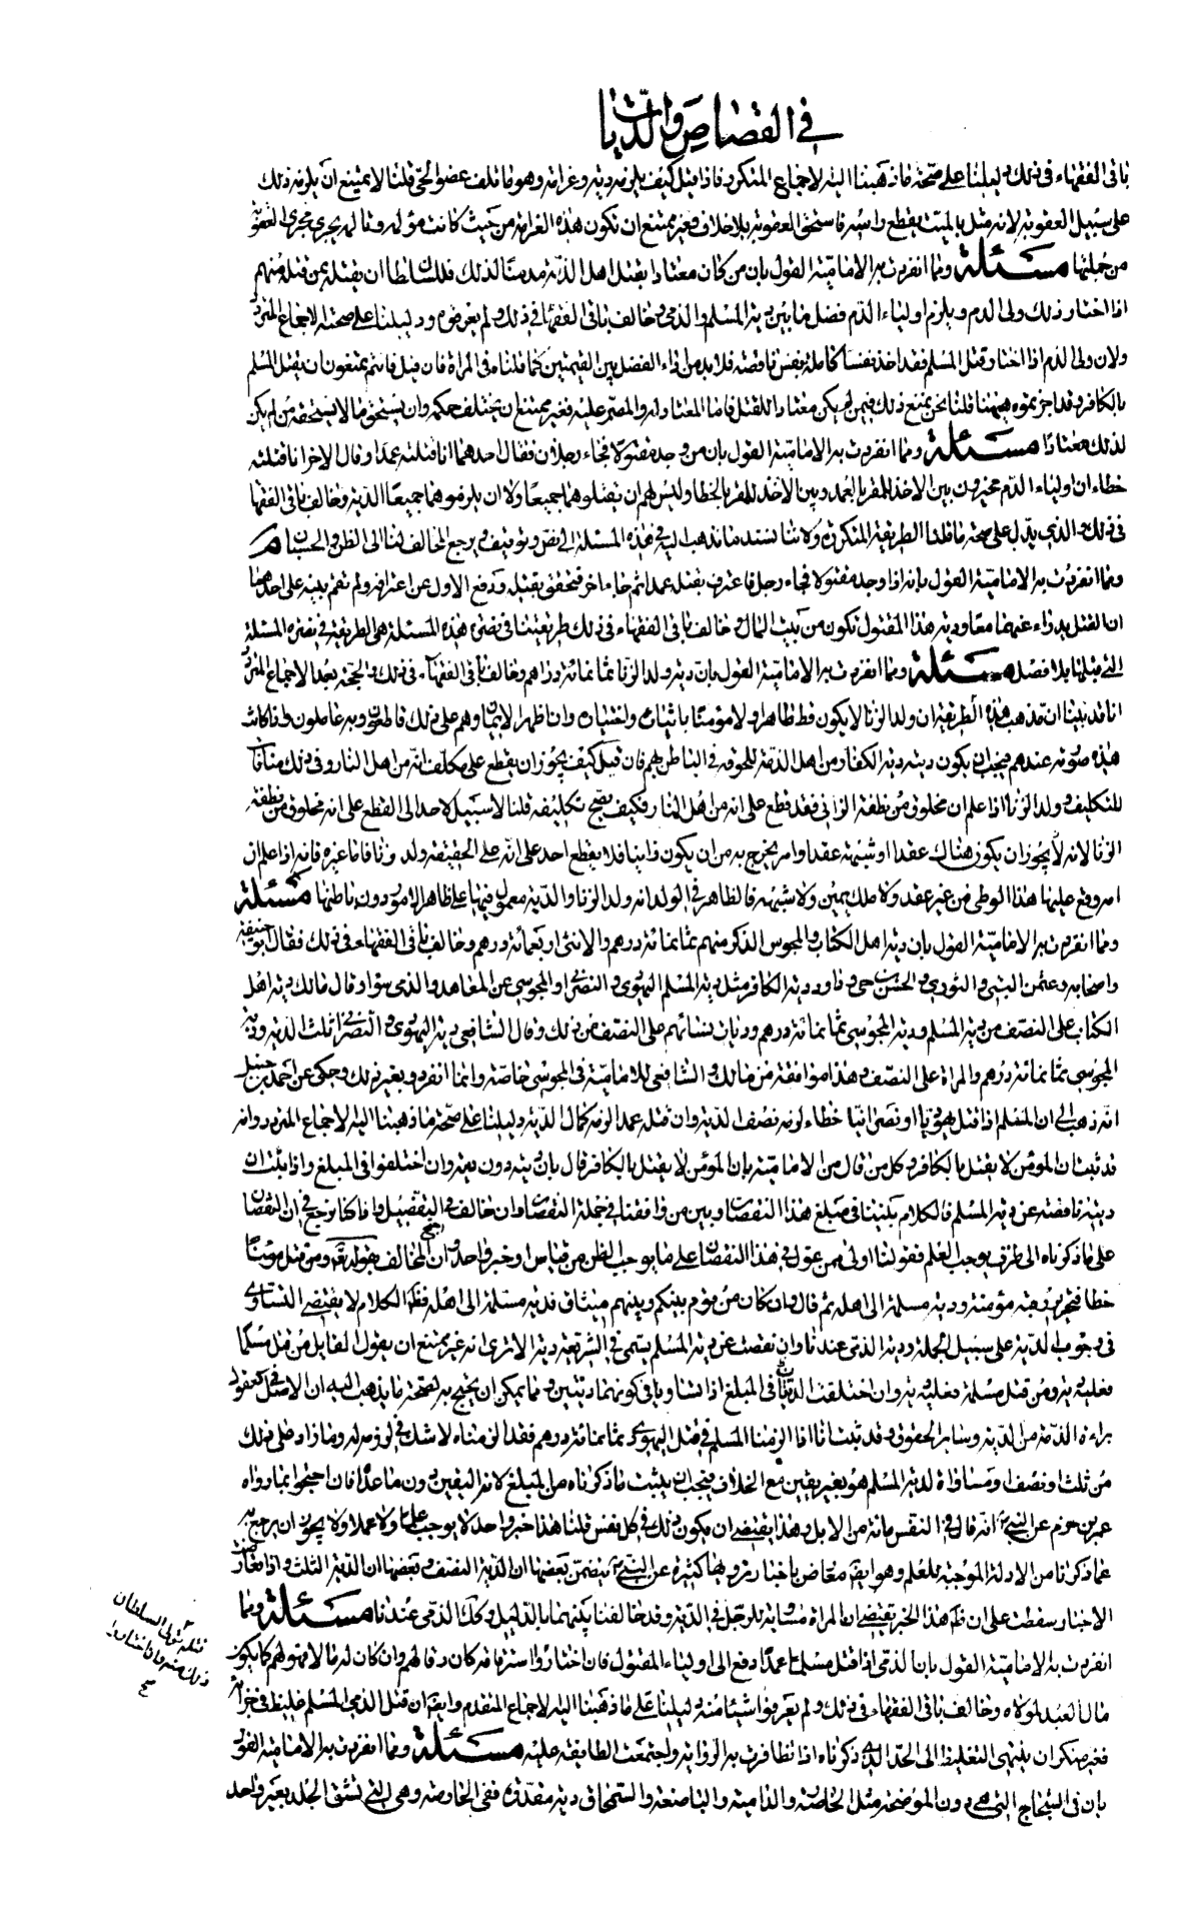 في القصاص والديات
باقي الفقهاء في ذلك دليلنا على صحة ما ذهبنا اليه الاجماع المتكرر فاذا قيل كيف يلزمه دية وغرامة وهو ما اتلف عضوا لحي قلنا لا يمتنع ان يلزمه ذلك
على سبيل العقوبة لانه مثل بالميت بقطع راسه فاستحق العقوبة بلا خلاف فغير ممتنع ان تكون هذه الغرامة من حيث كانت مؤلمة وتألمه يجري مجرى العقوبة
من جملتها مسئلة ومما انفردت به الامامية القول بان من كان معتادا بقتل اهل الذمة مدمنا لذلك فللسلطان ان يقتله بمن قتله منهم
اذا اختار ذلك ولي الدم ويلزم اولياء الدم فضل ما بين دية المسلم والذمي وخالف باقي الفقهاء في ذلك ولم يعرفوه ودليلنا على صحته الاجماع المتردد
ولان ولي الدم اذا اختار قتل المسلم فقد اخذ نفسا كاملة بنفس ناقصة فلا بد من اداء الفضل بين القيمتين كما قلناه في المراة فان قيل فانتم تمنعون ان يقتل المسلم
بالكافر وقد اجزتموه ههنا قلنا نحن نمنع ذلك فيمن لم يكن معتادا للقتل فاما المعتاد له والمصر عليه فغير ممتنع ان يختلف حكمه وان يستحق ما لا يستحقه من لم يكن
لذلك معتادا مسئلة ومما انفردت به الامامية القول بان من وجد مقتولا فجاء رجلان فقال احدهما انا قتلته عمدا وقال الاخر انا قتلته
خطاء ان اولياء الدم مخيرون بين الاخذ للمقر بالعمد وبين الاخذ للمقر بالخطا وليس لهم ان يقتلوهما جميعا ولا ان يلزموهما جميعا الدية وخالف باقي الفقها
في ذلك والذي يدل على صحة ما قلنا الطريقة المتكررة ولاننا نسند ما نذهب اليه في هذه المسئلة الى نص وتوقيف ويرجع المخالف لنا الى الظن والحسبان م
ومما انفردت به الامامية القول بانه اذا وجد مقتولا فجاء رجل فاعترف بقتله عمدا ثم جاء اخر فتحقق بقتله ودفع الاول عن اعترافه ولم تقم بينة على احدهما
ان القتل يدراء عنهما معا ودية هذا المقتول تكون من بيت المال وخالف باقي الفقهاء في ذلك طريقتنا في نصرة هذه المسئلة هي الطريقة في نصرة المسئلة
التي قبلها بلا فصل مسئلة ومما انفردت به الامامية القول بان دية ولد الزنا ثمانمائة درهم وخالف باقي الفقهاء في ذلك والحجة بعد الاجماع المتردد
انا قد بينا ان مذهب هذه الطريقة ان ولد الزنا لا يكون قط طاهرا ولا مؤمنا باثباته واختياره وان اظهر الايمان وهم على ذلك قاطعون وبه عاملون واذا كانت
هذه صورته عندهم فيجب ان يكون ديته دية الكفار من اهل الذمة للحوقه في الباطن بهم فان قيل كيف يجوز ان يقطع على مكلف انه من اهل النار وفي ذلك منافاة
للتكليف وولد الزنا اذا علم ان مخلوق من نطفة الزاني فقد قطع على انه من اهل النار فكيف يصح تكليفه قلنا لا سبيل لاحد الى القطع على انه مخلوق من نطفة
الزنا لانه لا يجوز ان يكون هناك عقد او شبهة عقد او امر يخرج به من ان يكون زانيا فلا يقطع احد على انه على الحقيقة ولد زنا فاما غيره فانه اذا علم ان
امه وقع عليها هذا الوطي من غير عقد ولا ملك يمين ولا شبهة فالظاهر في الولد انه ولد الزنا والدية معمول فيها على ظاهر الامور دون باطنها مسئلة
ومما انفردت به الامامية القول بان دية اهل الكتاب والمجوس الذكر منهم ثمانمائة درهم والانثى اربعمائة درهم وخالف باقي الفقهاء في ذلك فقال ابو حنيفة
واصحابه وعثمن البتي والثوري والحسن بن حي وداود دية الكافر مثل دية المسلم اليهودي والنصراني والمجوسي عن المعاهد والذمي سواء وقال مالك دية اهل
الكتاب على النصف من دية المسلم ودية المجوسي ثمانمائة درهم وديات نسائهم على النصف من ذلك وقال الشافعي دية اليهودي والنصراني ثلث الدية ودية
المجوسي ثمانمائة درهم والمراة على النصف وهذا موافقة من مالك والشافعي للامامية في المجوسي خاصة وانما انفردوا بغير ذلك وحكي عن احمد بن حنبل
انه ذهب الى ان المسلم اذا قتل يهوديا او نصرانيا خطاء لزمه نصف الدية وان قتله عمدا لزمه كمال الدية دليلنا على صحة ما ذهبنا اليه الاجماع المتردد وانه
قد ثبت ان المؤمن لا يقتل بالكافر وكل من قال من الامامية بان المؤمن لا يقتل بالكافر قال بان ديته دون ديته وان اختلفوا في المبلغ واذا ثبت ان
ديته ناقصة عن دية المسلم فالكلام بيننا في مبلغ هذا النقصان وبين من وافقنا في جملة النقصان وان خالف في التفصيل واذا كنا نرجع في ان النقصان
على ما ذكرناه الى طريق يوجب العلم فقولنا اولى ممن عول في هذا النقصان على ما يوجب الظن من قياس او خبر واحد وان احتج المخالف بقوله تعالى ومن قتل مؤمنا
خطا فتحرير رقبة مؤمنة ودية مسلمة الى اهله ثم قال وان كان من قوم بينكم وبينهم ميثاق فدية مسلمة الى اهله فظاهر الكلام لا يقتضي التساوي
في وجوب الدية على سبيل الجملة ودية الذمي عندنا وان نقصت عن دية المسلم يتسمى في الشريعة دية الا ترى انه غير ممتنع ان يقول القايل من قتل مسلما
فعليه دية ومن قتل مسلمة فعليه دية وان اختلفت الديتان في المبلغ اذا تساويا في كونهما ديتين ومما يمكن ان يحتج به لصحة ما يذهب اليه ان الاصل في العقول
براءة الذمة من الدية وساير الحقوق وقد ثبت انا اذا الزمنا المسلم في قتل اليهودي ثمانمائة درهم فقد الزمناه ما لا شك في لزومه له وما زاد على ذلك
من ثلث او نصف او مساواة لدية المسلم هو بغير يقين مع الخلاف فيجب ان يثبت ما ذكرناه من المبلغ لانه اليقين دون ما عداه فان احتجوا بما رواه
عمرو بن حزم عن النبي ص انه قال في النفس مائة من الابل وهذا يقتضي ان يكون ذلك في كل نفس قلنا هذا خبر واحد لا يوجب علما ولا عملا ولا يجوز ان يرجع به
عما ذكرنا من الادلة الموجبة للعلم وهو ايضا معارض باخبار نرويها كثيرة عن النبي ص يتضمن بعضها ان الدية النصف وبعضها ان الدية الثلث واذا تعارضت
الاخبار سقطت على ان ظاهر هذا الخبر يقتضي ان المراة مساوية للرجل في الدية وقد خالفنا بينهما بالدليل وكذلك الذمي عندنا مسئلة ومما
انفردت به الامامية القول بان الذمي اذا قتل مسلما عمدا دفع الى اولياء المقتول فان اختاروا استرقاقه كان رقا لهم وان كان له مال فهو لهم كما يكون
مال العبد لمولاه وخالف باقي الفقهاء في ذلك ولم يعرفوا شيئا منه دليلنا على ما ذهبنا اليه الاجماع المتقدم وايضا ان قتل الذمي المسلم غليظ في خرق الذمة
فغير منكر ان ينتهي التغليظ الى الحد الذي ذكرناه اذا تظافرت به الرواية واجتمعت الطايفة عليه مسئلة ومما انفردت به الامامية القول
بان في الشجاج التي هي دون الموضحة مثل الخارصة والدامية والباضعة والسمحاق دية مقدرة ففي الخارصة وهي التي تشق الجلد بعير واحد
قتله تولى السلطان
ذلك منه وان اختاروا